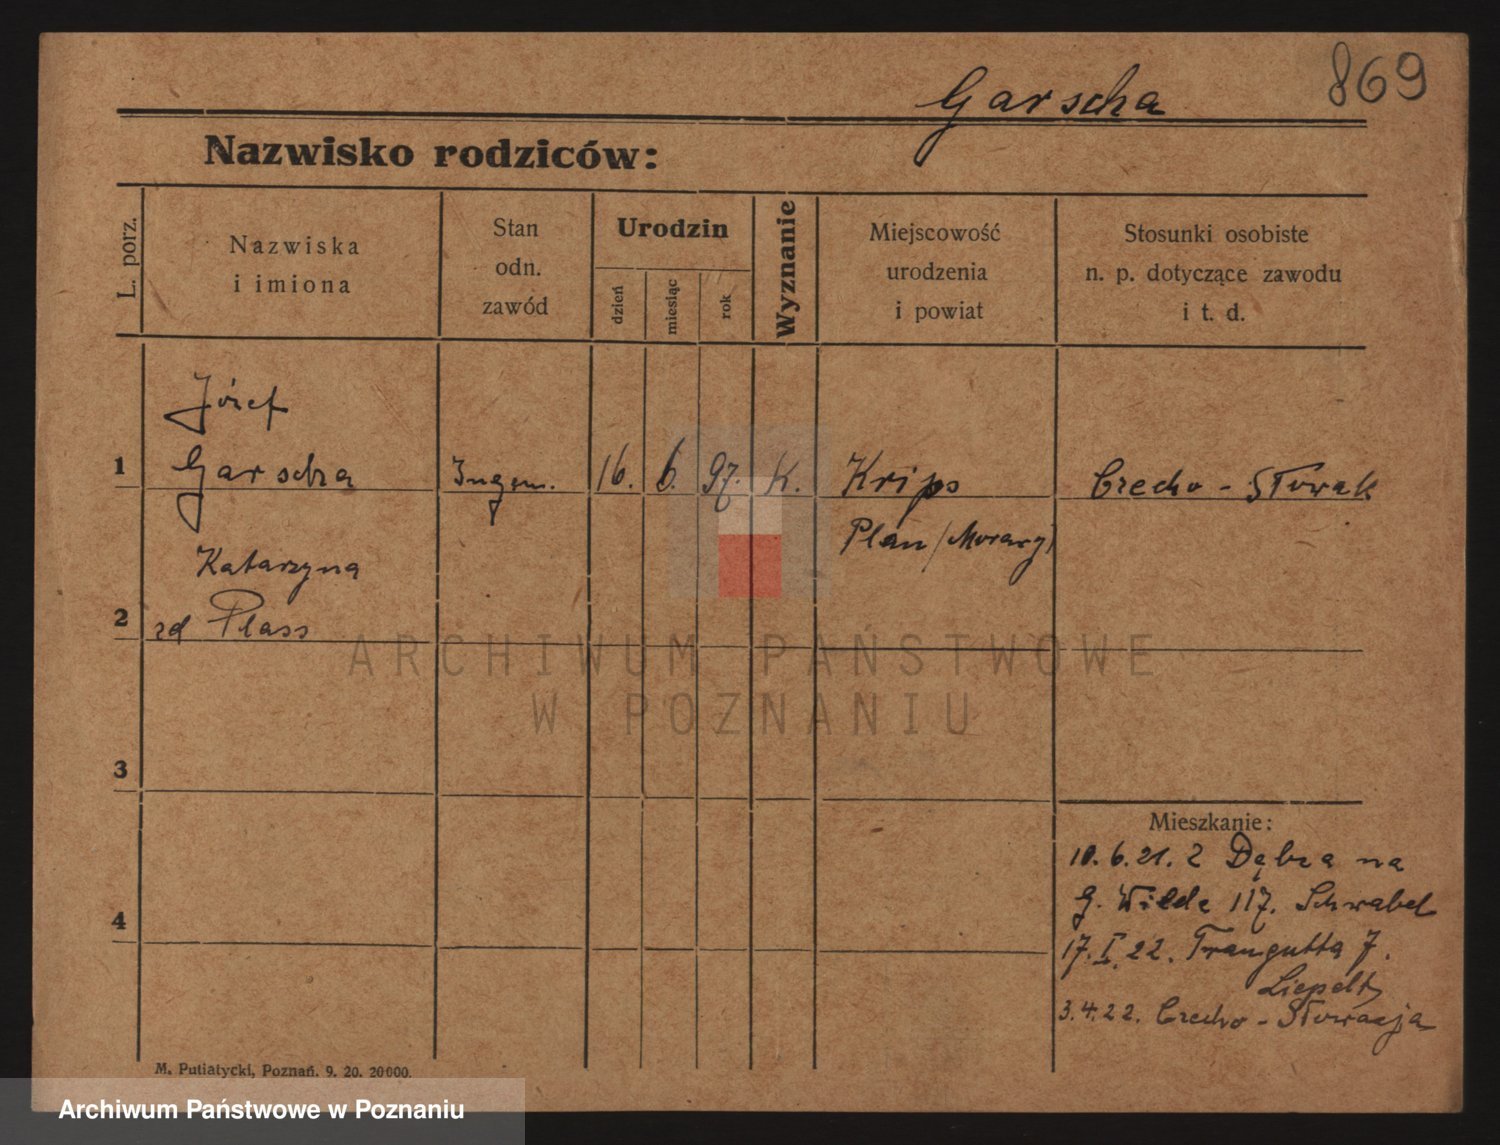 869
Garscha
Nazwisko rodziców:
L. porz.
Nazwiska
i imiona
Stan
odn.
zawód
Urodzin
dzień
miesiąc
rok
Wyznanie
Miejscowość
urodzenia
i powiat
Stosunki osobiste
n. p. dotyczące zawodu
i t. d.
Józef
1 Garscha Ingen. 16. 6. 97. K. Krips Czecho-Słowak
Plan (Morawy)
Katarzyna
2 zd Plass
ARCHIWUM PAŃSTWOWE
W POZNANIU
3
4
Mieszkanie:
10.6.21. z Dębca na
G. Wilde 117. Schwabel
17.I.22. Traugutta 7.
Liepelt
3.4.22. Czecho-Słowacja
M. Putiatycki, Poznań. 9. 20. 20000.
Archiwum Państwowe w Poznaniu